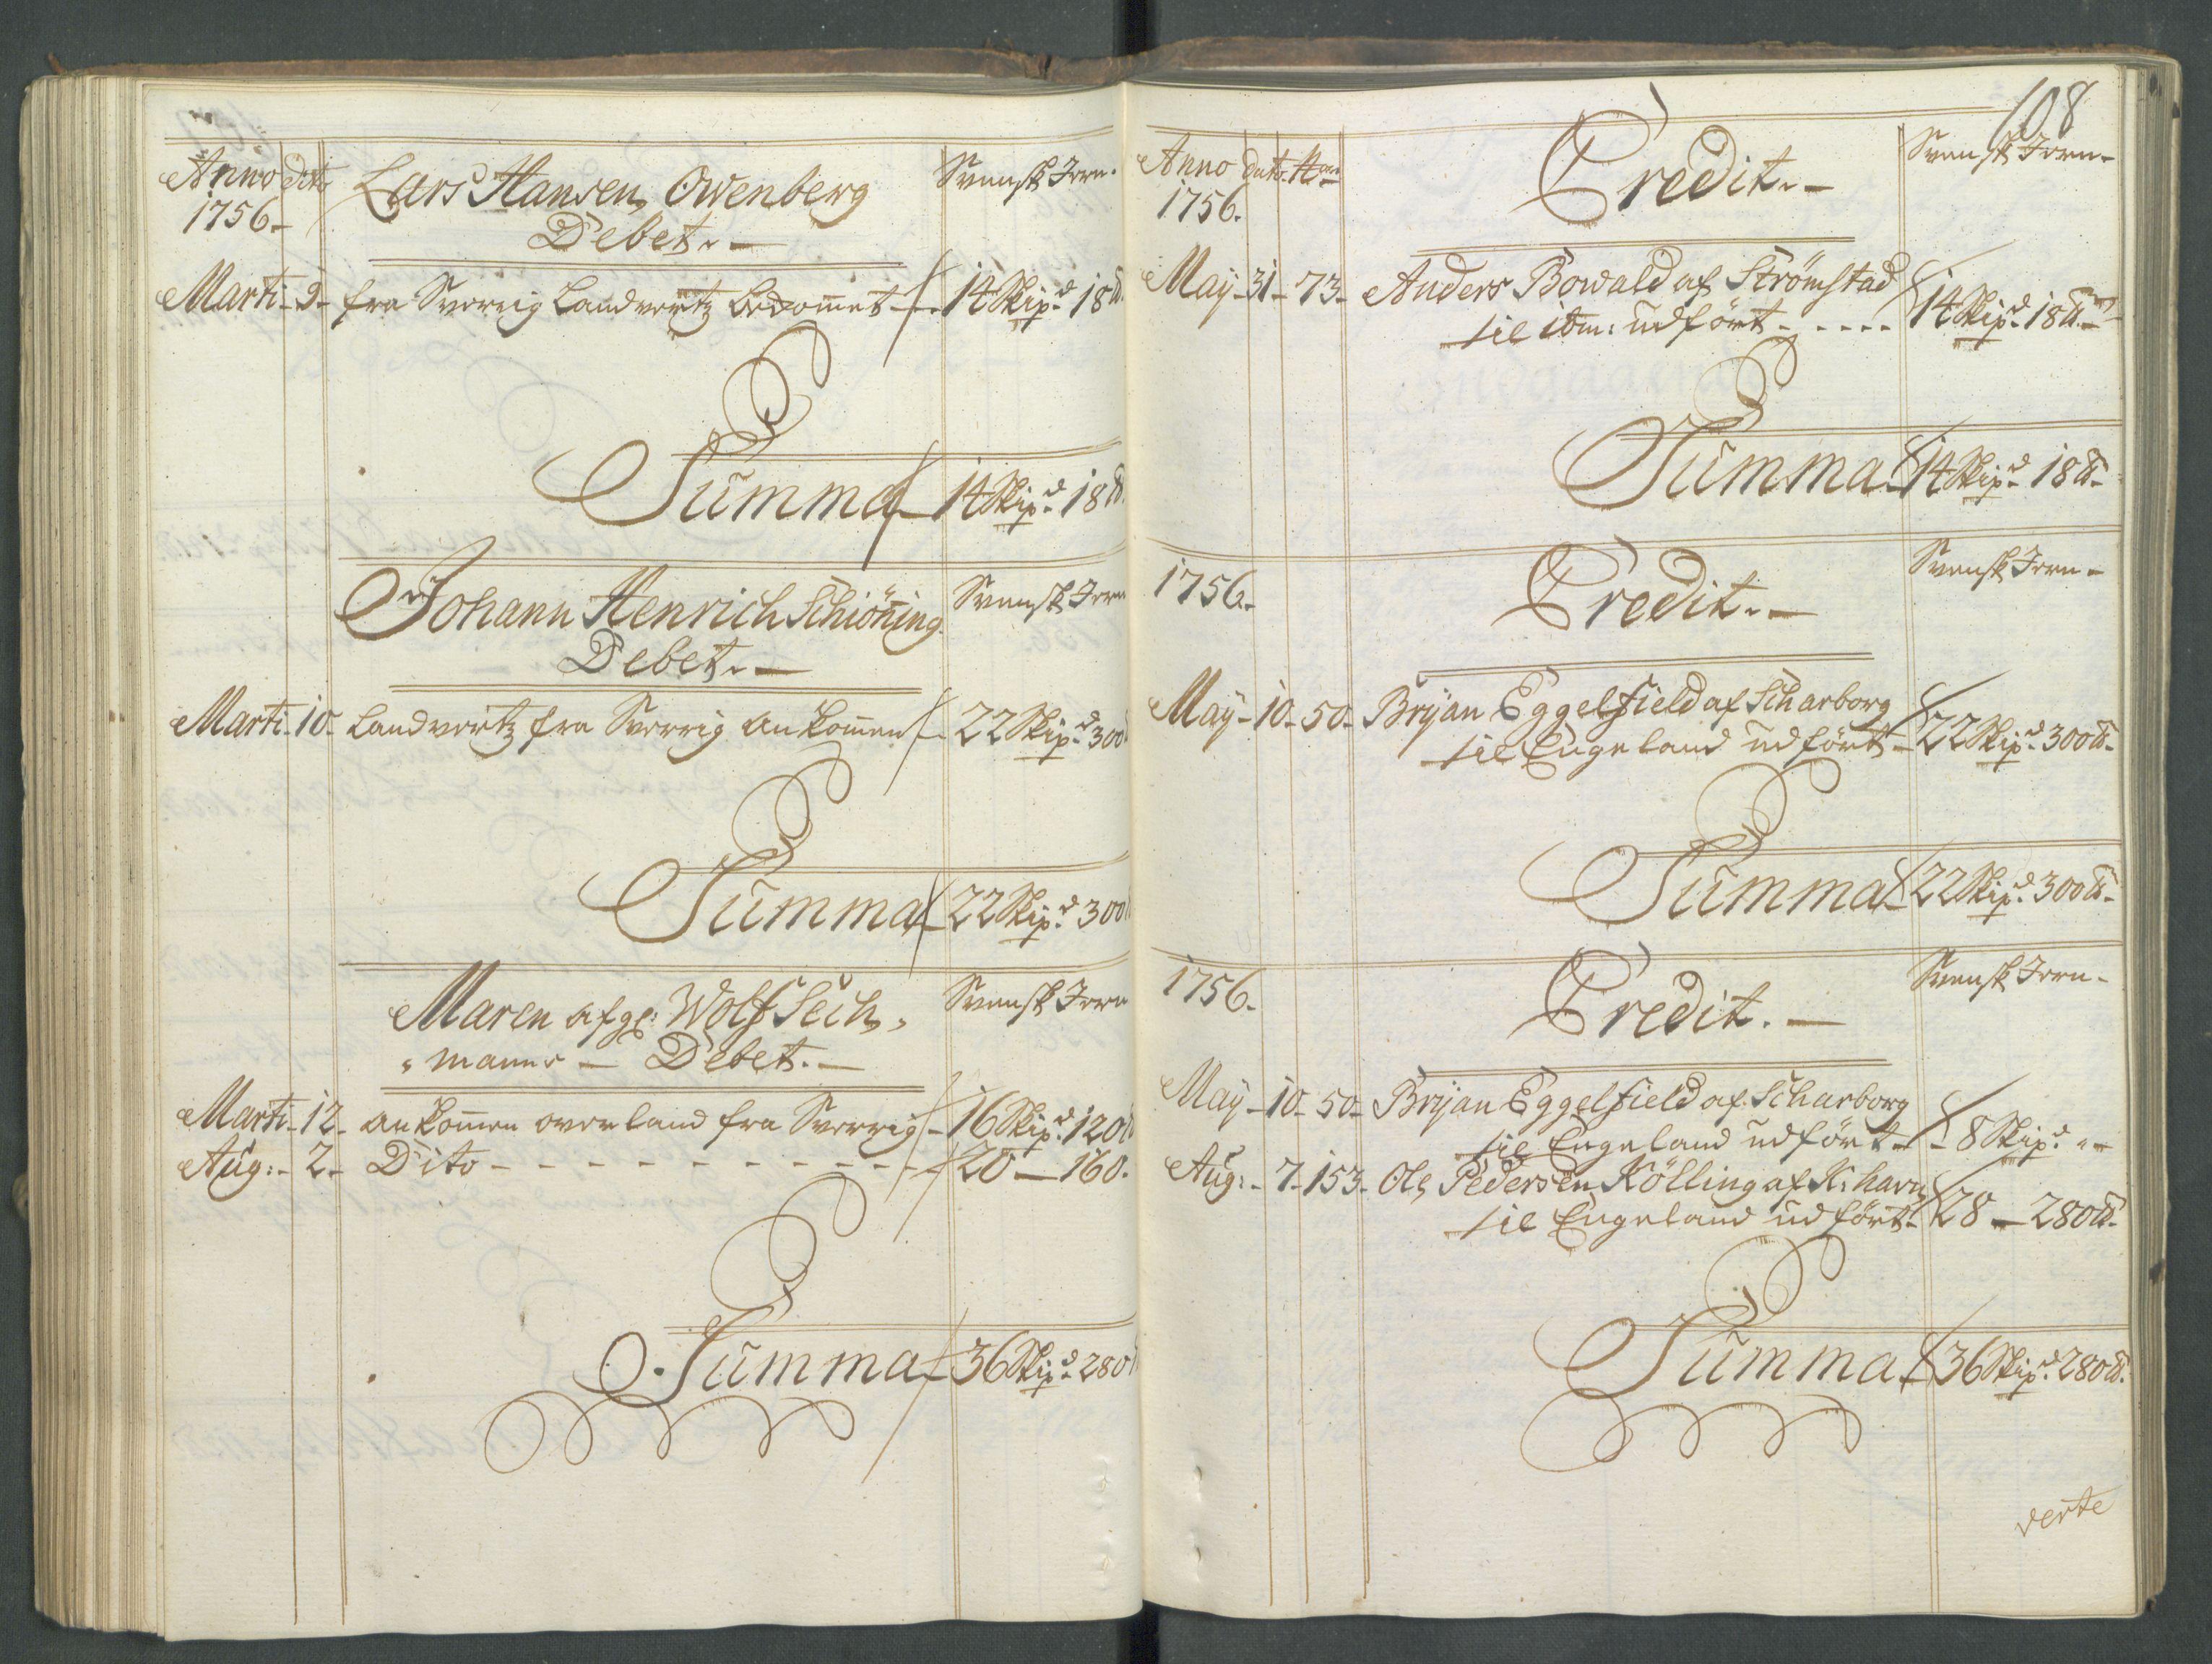 Anno dato Lars Hansen Owenberg Svensk Jern.
1756. Debet.
Marti 9 fra Sverrig Landverts bekommet 14 Skip.d 18 ℔
Summa 14 Skip.d 18 ℔
Johann Henrich Schiöning Svensk Jern
Debet.
Marti 10 Landverts fra Sverrig ankommen 22 Skip.d 300
Summa 22 Skip.d 300
Maren afg: Wolf Seich Svensk Jern
manns Debet.
Marti 12 ankommen over land fra Sverrig 16 Skip.d 120
Aug: 2 Dito 20 160.
Summa 36 Skip.d 280
108
Anno dato Credit. Svensk Jern
1756.
May 31 73 Anders Bowald af Strömstad
til idm: udfört 14 Skip.d 18 ℔
Summa 14 Skip.d 18 ℔
1756. Credit. Svensk Jern
May 10 50 Bryan Eggelfield af Scharborg
til Engeland udfört 22 Skip.d 300 ℔
Summa 22 Skip.d 300 ℔
1756. Credit. Svensk Jern
May 10 50 Bryan Eggelfield af Scharborg
til Engeland udfört 8 Skip.d "
Aug: 7 153 Ole Pedersen Kölling af K: havn
til Engeland udfört 28 280 ℔
Summa 36 Skip.d 280 ℔.
verte